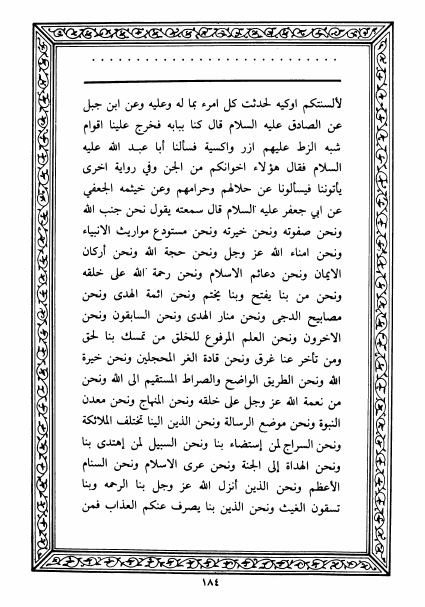 لألسنتكم اوكيه لحدثت كل امرء بما له وعليه وعن ابن جبل
عن الصادق عليه السلام قال كنا ببابه فخرج علينا اقوام
شبه الزط عليهم ازر واكسية فسألنا أبا عبد الله عليه
السلام فقال هؤلاء اخوانكم من الجن وفي رواية اخرى
يأتوننا فيسألونا عن حلالهم وحرامهم وعن خيثمه الجعفي
عن ابي جعفر عليه السلام قال سمعته يقول نحن جنب الله
ونحن صفوته ونحن خيرته ونحن مستودع مواريث الانبياء
ونحن امناء الله عز وجل ونحن حجة الله ونحن أركان
الايمان ونحن دعائم الاسلام ونحن رحمة الله على خلقه
ونحن من بنا يفتح وبنا يختم ونحن ائمة الهدى ونحن
مصابيح الدجى ونحن منار الهدى ونحن السابقون ونحن
الاخرون ونحن العلم المرفوع للخلق من تمسك بنا لحق
ومن تأخر عنا غرق ونحن قادة الغر المحجلين ونحن خيرة
الله ونحن الطريق الواضح والصراط المستقيم الى الله ونحن
من نعمة الله عز وجل على خلقه ونحن المنهاج ونحن معدن
النبوة ونحن موضع الرسالة ونحن الذين الينا تختلف الملائكة
ونحن السراج لمن إستضاء بنا ونحن السبيل لمن إهتدى بنا
ونحن الهداة إلى الجنة ونحن عرى الاسلام ونحن السنام
الأعظم ونحن الذين أنزل الله عز وجل بنا الرحمه وبنا
تسقون الغيث ونحن الذين بنا يصرف عنكم العذاب فمن
١٨٤